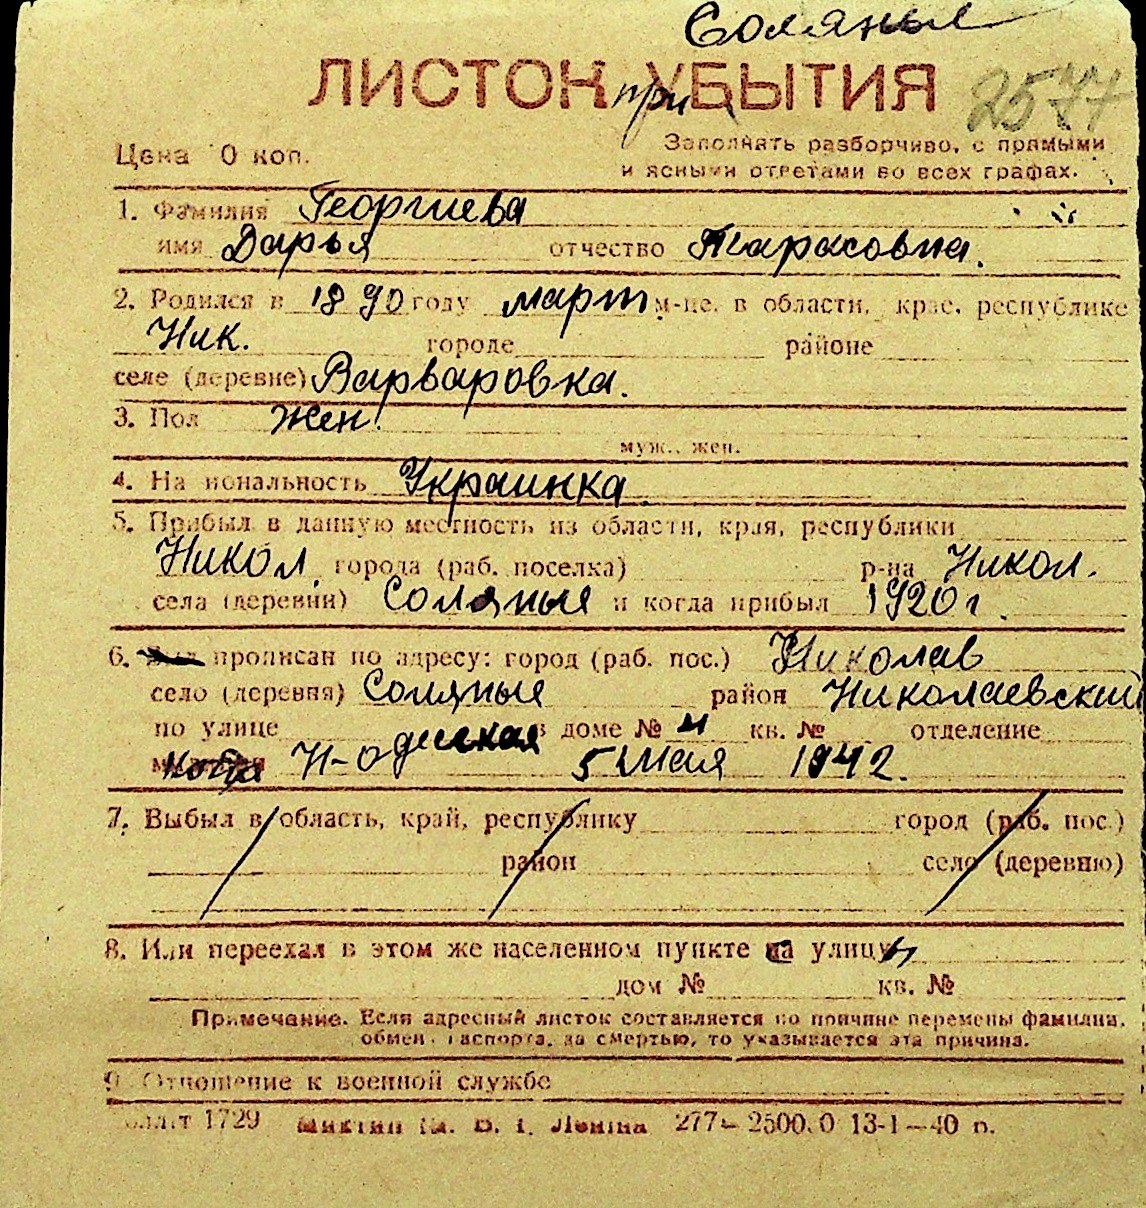 Соляные
ЛИСТОК при УБЫТИЯ 2577
Цена 0 коп. Заполнять разборчиво, с прямыми
и ясными ответами во всех графах.
1. Фамилия Георгиева
имя Дарья отчество Тарасовна.
2. Родился в 1890 году март м-це. в области, крае, республике
Ник. городе районе
селе (деревне) Варваровка.
3. Пол Жен.
муж., жен.
4. Национальность Украинка.
5. Прибыл в данную местность из области, края, республики
Никол. города (раб. поселка) р-на Никол.
села (деревни) Соляные и когда прибыл 1920 г.
6. прописан по адресу: город (раб. пос.) Николаев
село (деревня) Соляные район Николаевский
по улице в доме № 4 кв. № отделение
когда Н-одесская 5 мая 1942.
7. Выбыл в область, край, республику город (раб. пос.)
район село (деревню)
8. Или переехал в этом же населенном пункте на улицу
дом № кв. №
Примечание. Если адресный листок составляется по причине перемены фамилии,
обмен. паспорта, за смертью, то указывается эта причина.
9. Отношение к военной службе
1729 Ленина 277— 2500.0 13-I—40 п.